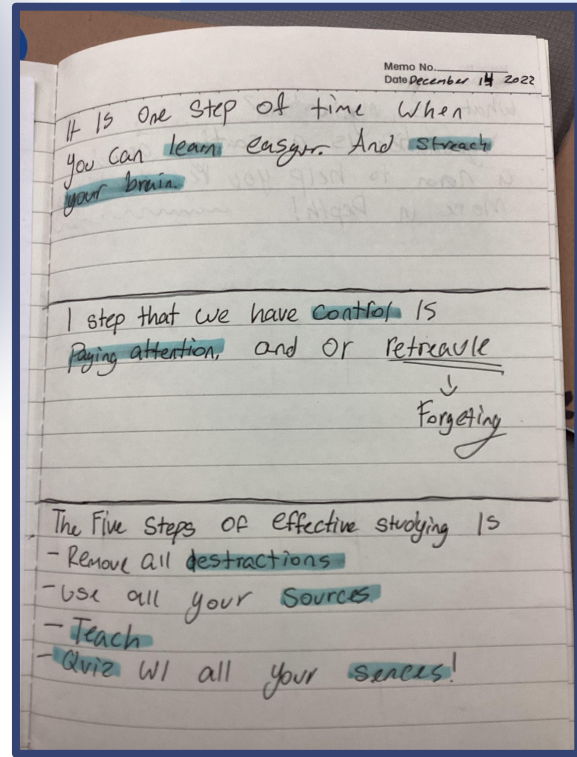 Memo No.
Date December 14 2022
It Is One Step of time when
you can learn easyur. And streach
your brain.
1 step that we have control IS
Paying attention, and or retreavle
↓
Forgeting
The Five Steps of effective studying Is
- Remove all destractions
- Use all your Sources
- Teach
- Quiz w/ all your sences!